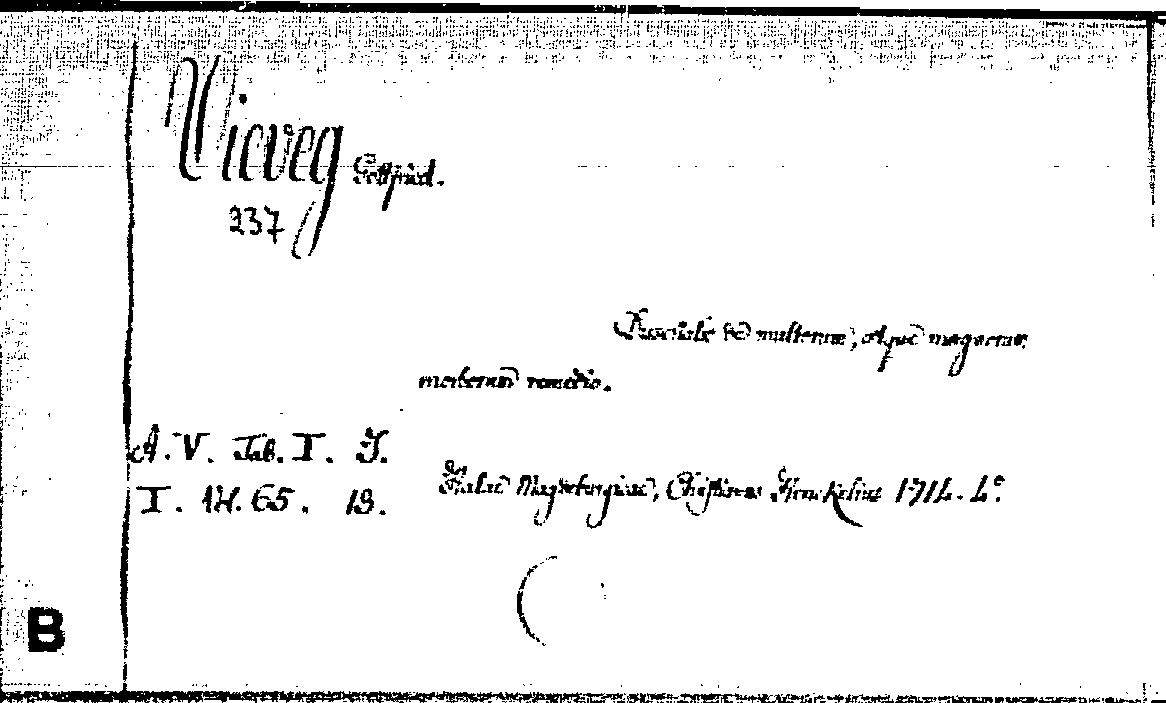 Vieweg Gottfried.
237
de multorum, atque magnorum
morborum remedio.
A. V. Tab. I. J.
I. 1H. 65. 13.
Halae Magdeburgicae, Christianus Henckelius 1714. 4°
B